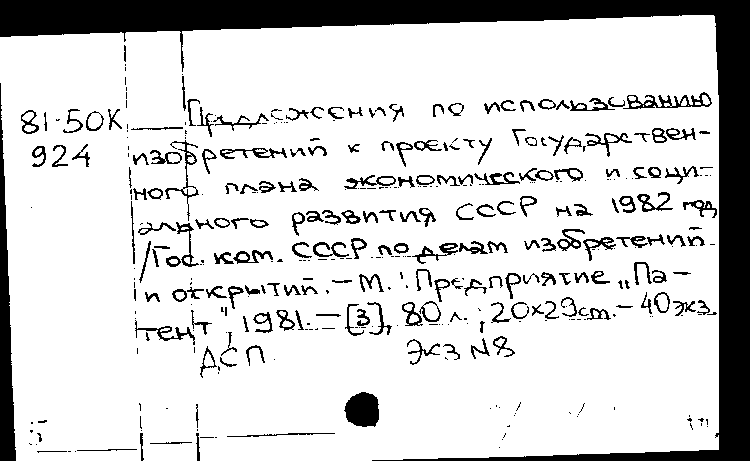 81-50К Предложения по использованию
924 изобретений к проекту Государствен-
ного плана экономического и соци-
ального развития СССР на 1982 год
/Гос. ком. СССР по делам изобретений
и открытий. – М.: Предприятие „Па-
тент", 1981. – [3], 80 л.; 20×29 cm. – 40 экз.
ДСП Экз N8
5